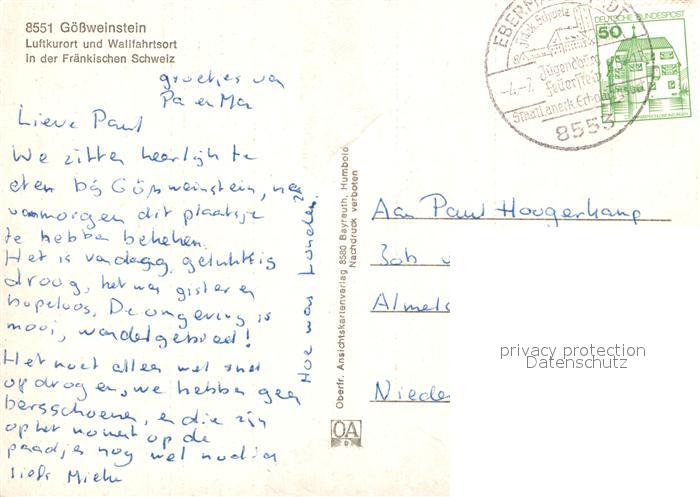 8551 Gößweinstein
Luftkurort und Wallfahrtsort
in der Fränkischen Schweiz
groetjes van
Pa en Ma
Lieve Paul
We zitten heerlijk te
eten bij Gößweinstein, na
vanmorgen dit plaatsje
te hebben bekeken.
Het is vandaag gelukkig
droog, het was gisteren
hopeloos. De omgeving is
mooi, wandelgebied!
Het moet alleen wel snel
opdrogen, we hebben geen
bergschoenen, en die zijn
op het moment op de
paadjes nog wel nodig
liefs Mieke
Hoe was Londen?
Oberfr. Ansichtskartenverlag 8580 Bayreuth, Humbold
Nachdruck verboten
OA
EBERMA
Fränk. Schweiz
Jugendburg
Feuerstein
Staatl. anerk. Erho
8553
DEUTSCHE BUNDESPOST
50
Aan Paul Hoogerkamp
Bob
Almel
Niede
privacy protection
Datenschutz